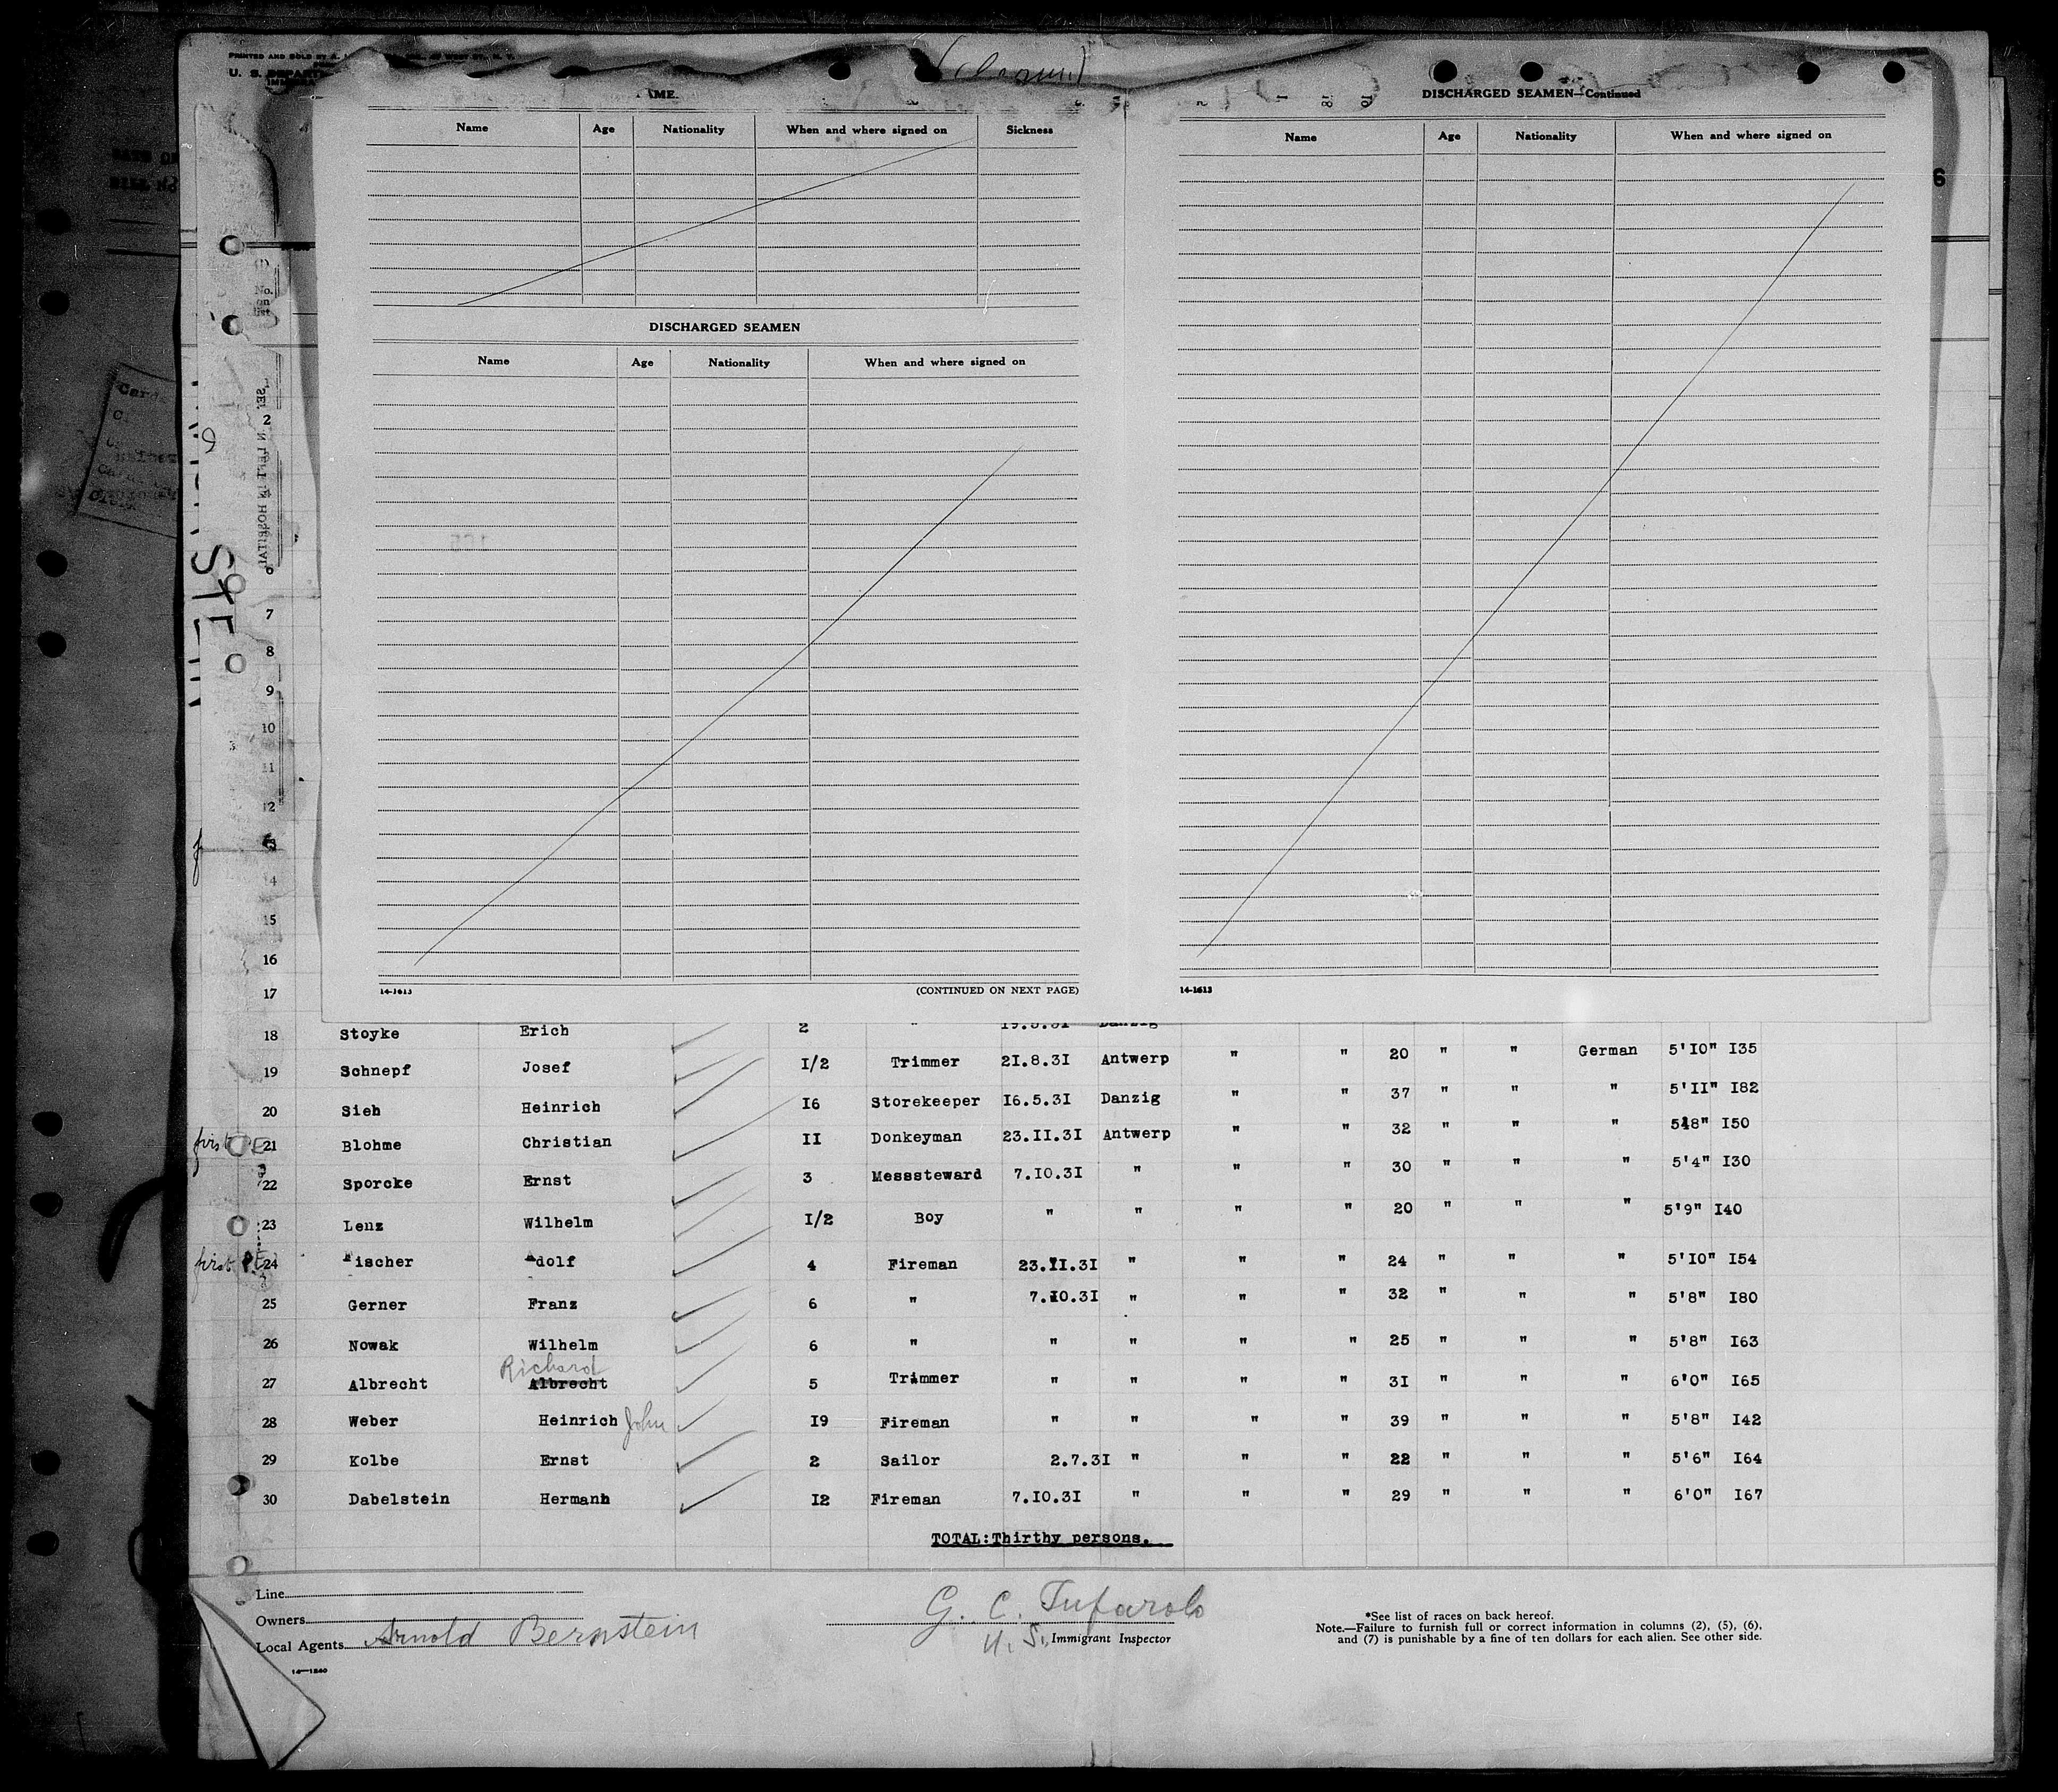 PRINTED AND SOLD BY
U. S. DEPART
DISCHARGED SEAMEN—Continued
Name Age Nationality When and where signed on Sickness
Name Age Nationality When and where signed on
DISCHARGED SEAMEN
Name Age Nationality When and where signed on
No. on list
2
7
8
9
10
11
12
14
15
16
14-1613 (CONTINUED ON NEXT PAGE) 14-1613
17
18 Stoyke Erich 2 "
19 Schnepf Josef I/2 Trimmer 2I.8.3I Antwerp " " 20 " " German 5'I0" I35
20 Sieh Heinrich I6 Storekeeper I6.5.3I Danzig " " 37 " " " 5'II" I82
first 21 Blohme Christian II Donkeyman 23.II.3I Antwerp " " 32 " " " 5'8" I50
22 Sporcke Ernst 3 Messsteward 7.I0.3I " " " 30 " " " 5'4" I30
23 Lenz Wilhelm I/2 Boy " " " " 20 " " " 5'9" I40
first P.E. 24 Fischer Adolf 4 Fireman 23.II.3I " " " 24 " " " 5'I0" I54
25 Gerner Franz 6 " 7.I0.3I " " " 32 " " " 5'8" I80
26 Nowak Wilhelm 6 " " " " " 25 " " " 5'8" I63
Richard
27 Albrecht Albrecht 5 Trimmer " " " " 3I " " " 6'0" I65
28 Weber Heinrich John I9 Fireman " " " " 39 " " " 5'8" I42
29 Kolbe Ernst 2 Sailor 2.7.3I " " " 22 " " " 5'6" I64
30 Dabelstein Hermann I2 Fireman 7.I0.3I " " " 29 " " " 6'0" I67
TOTAL:Thirthy persons.
Line
Owners
Local Agents Arnold Bernstein
G. C. Tufarolo
U. S. Immigrant Inspector
*See list of races on back hereof.
Note.—Failure to furnish full or correct information in columns (2), (5), (6),
and (7) is punishable by a fine of ten dollars for each alien. See other side.
14—1240